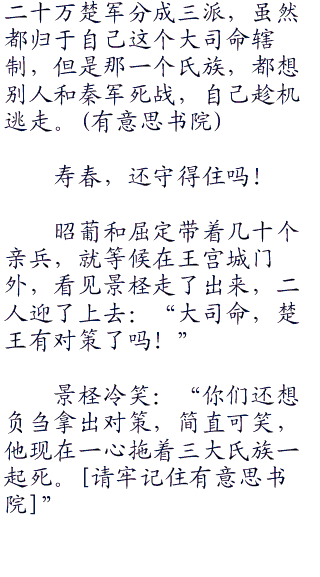 二十万楚军分成三派，虽然
都归于自己这个大司命辖
制，但是那一个氏族，都想
别人和秦军死战，自己趁机
逃走。(有意思书院)
寿春，还守得住吗！
昭蔺和屈定带着几十个
亲兵，就等候在王宫城门
外，看见景柽走了出来，二
人迎了上去：“大司命，楚
王有对策了吗！”
景柽冷笑：“你们还想
负刍拿出对策，简直可笑，
他现在一心拖着三大氏族一
起死。[请牢记住有意思书
院]”